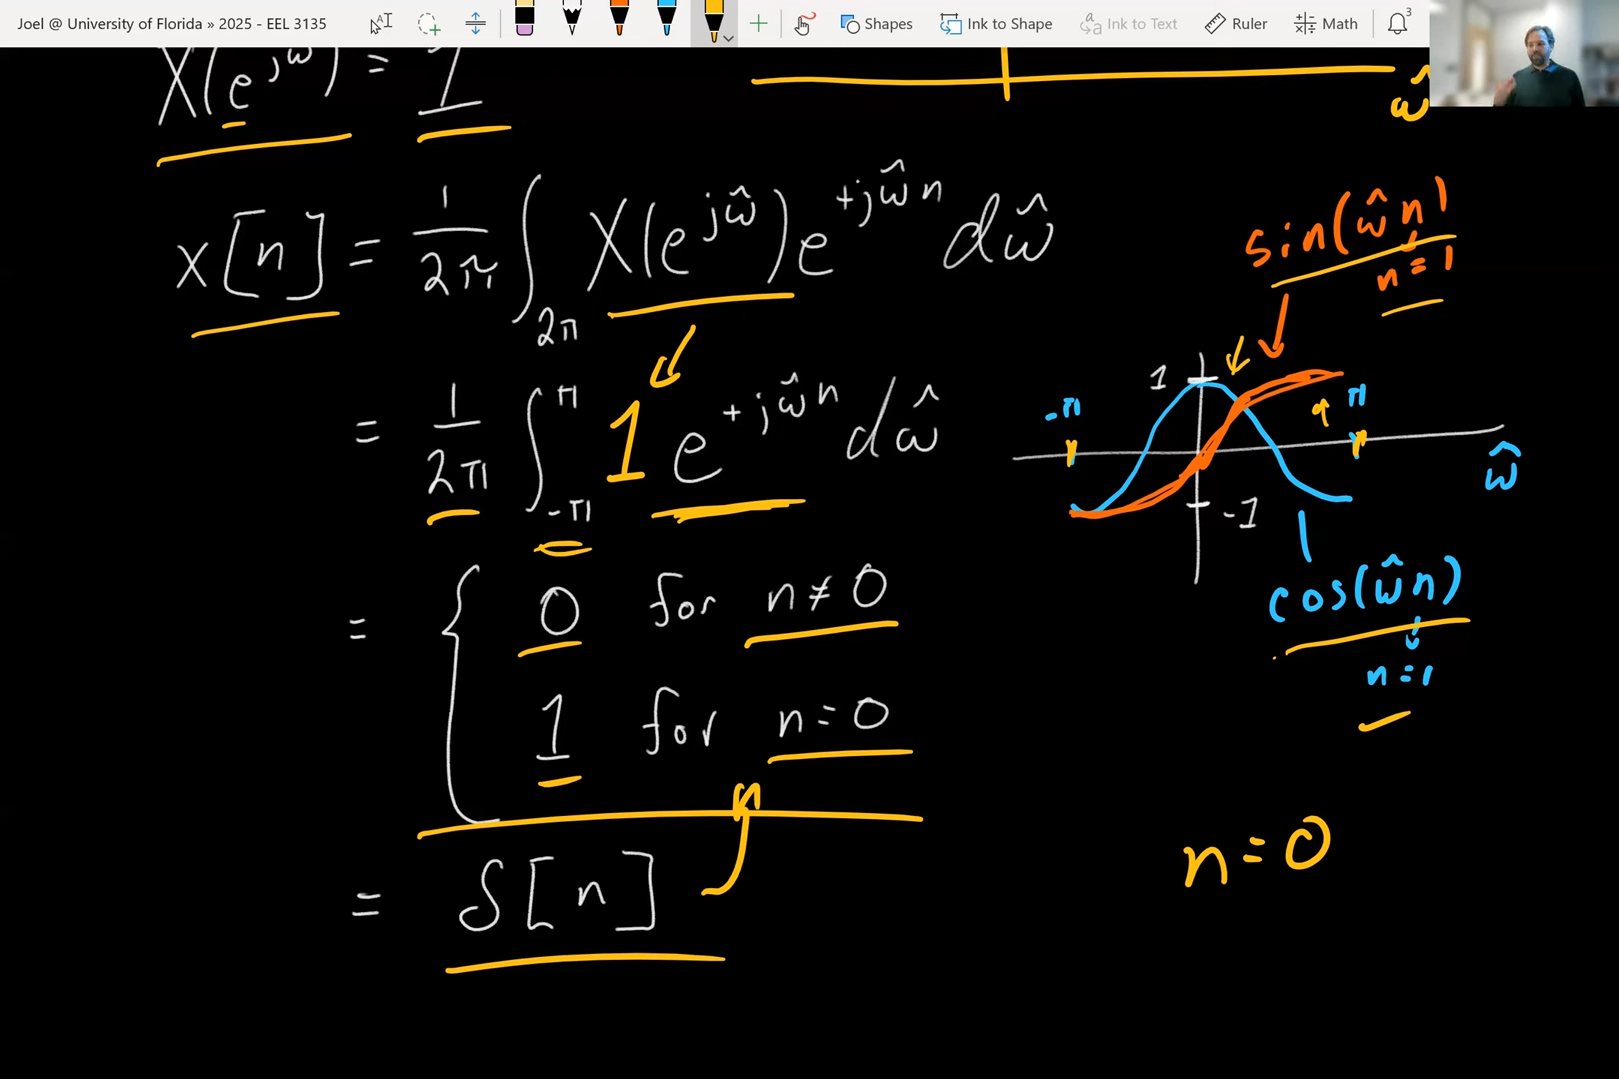 Joel @ University of Florida » 2025 - EEL 3135
Shapes
Ink to Shape
Ink to Text
Ruler
Math
3
X(e^{jω̂}) = 1
ω̂
x[n] = 1/2π ∫_{2π} X(e^{jω̂}) e^{+jω̂n} dω̂
= 1/2π ∫_{-π}^{π} 1 e^{+jω̂n} dω̂
= { 0 for n ≠ 0
1 for n = 0
= δ[n]
sin(ω̂n)
n = 1
1
-π
π
ω̂
-1
cos(ω̂n)
n = 1
n = 0